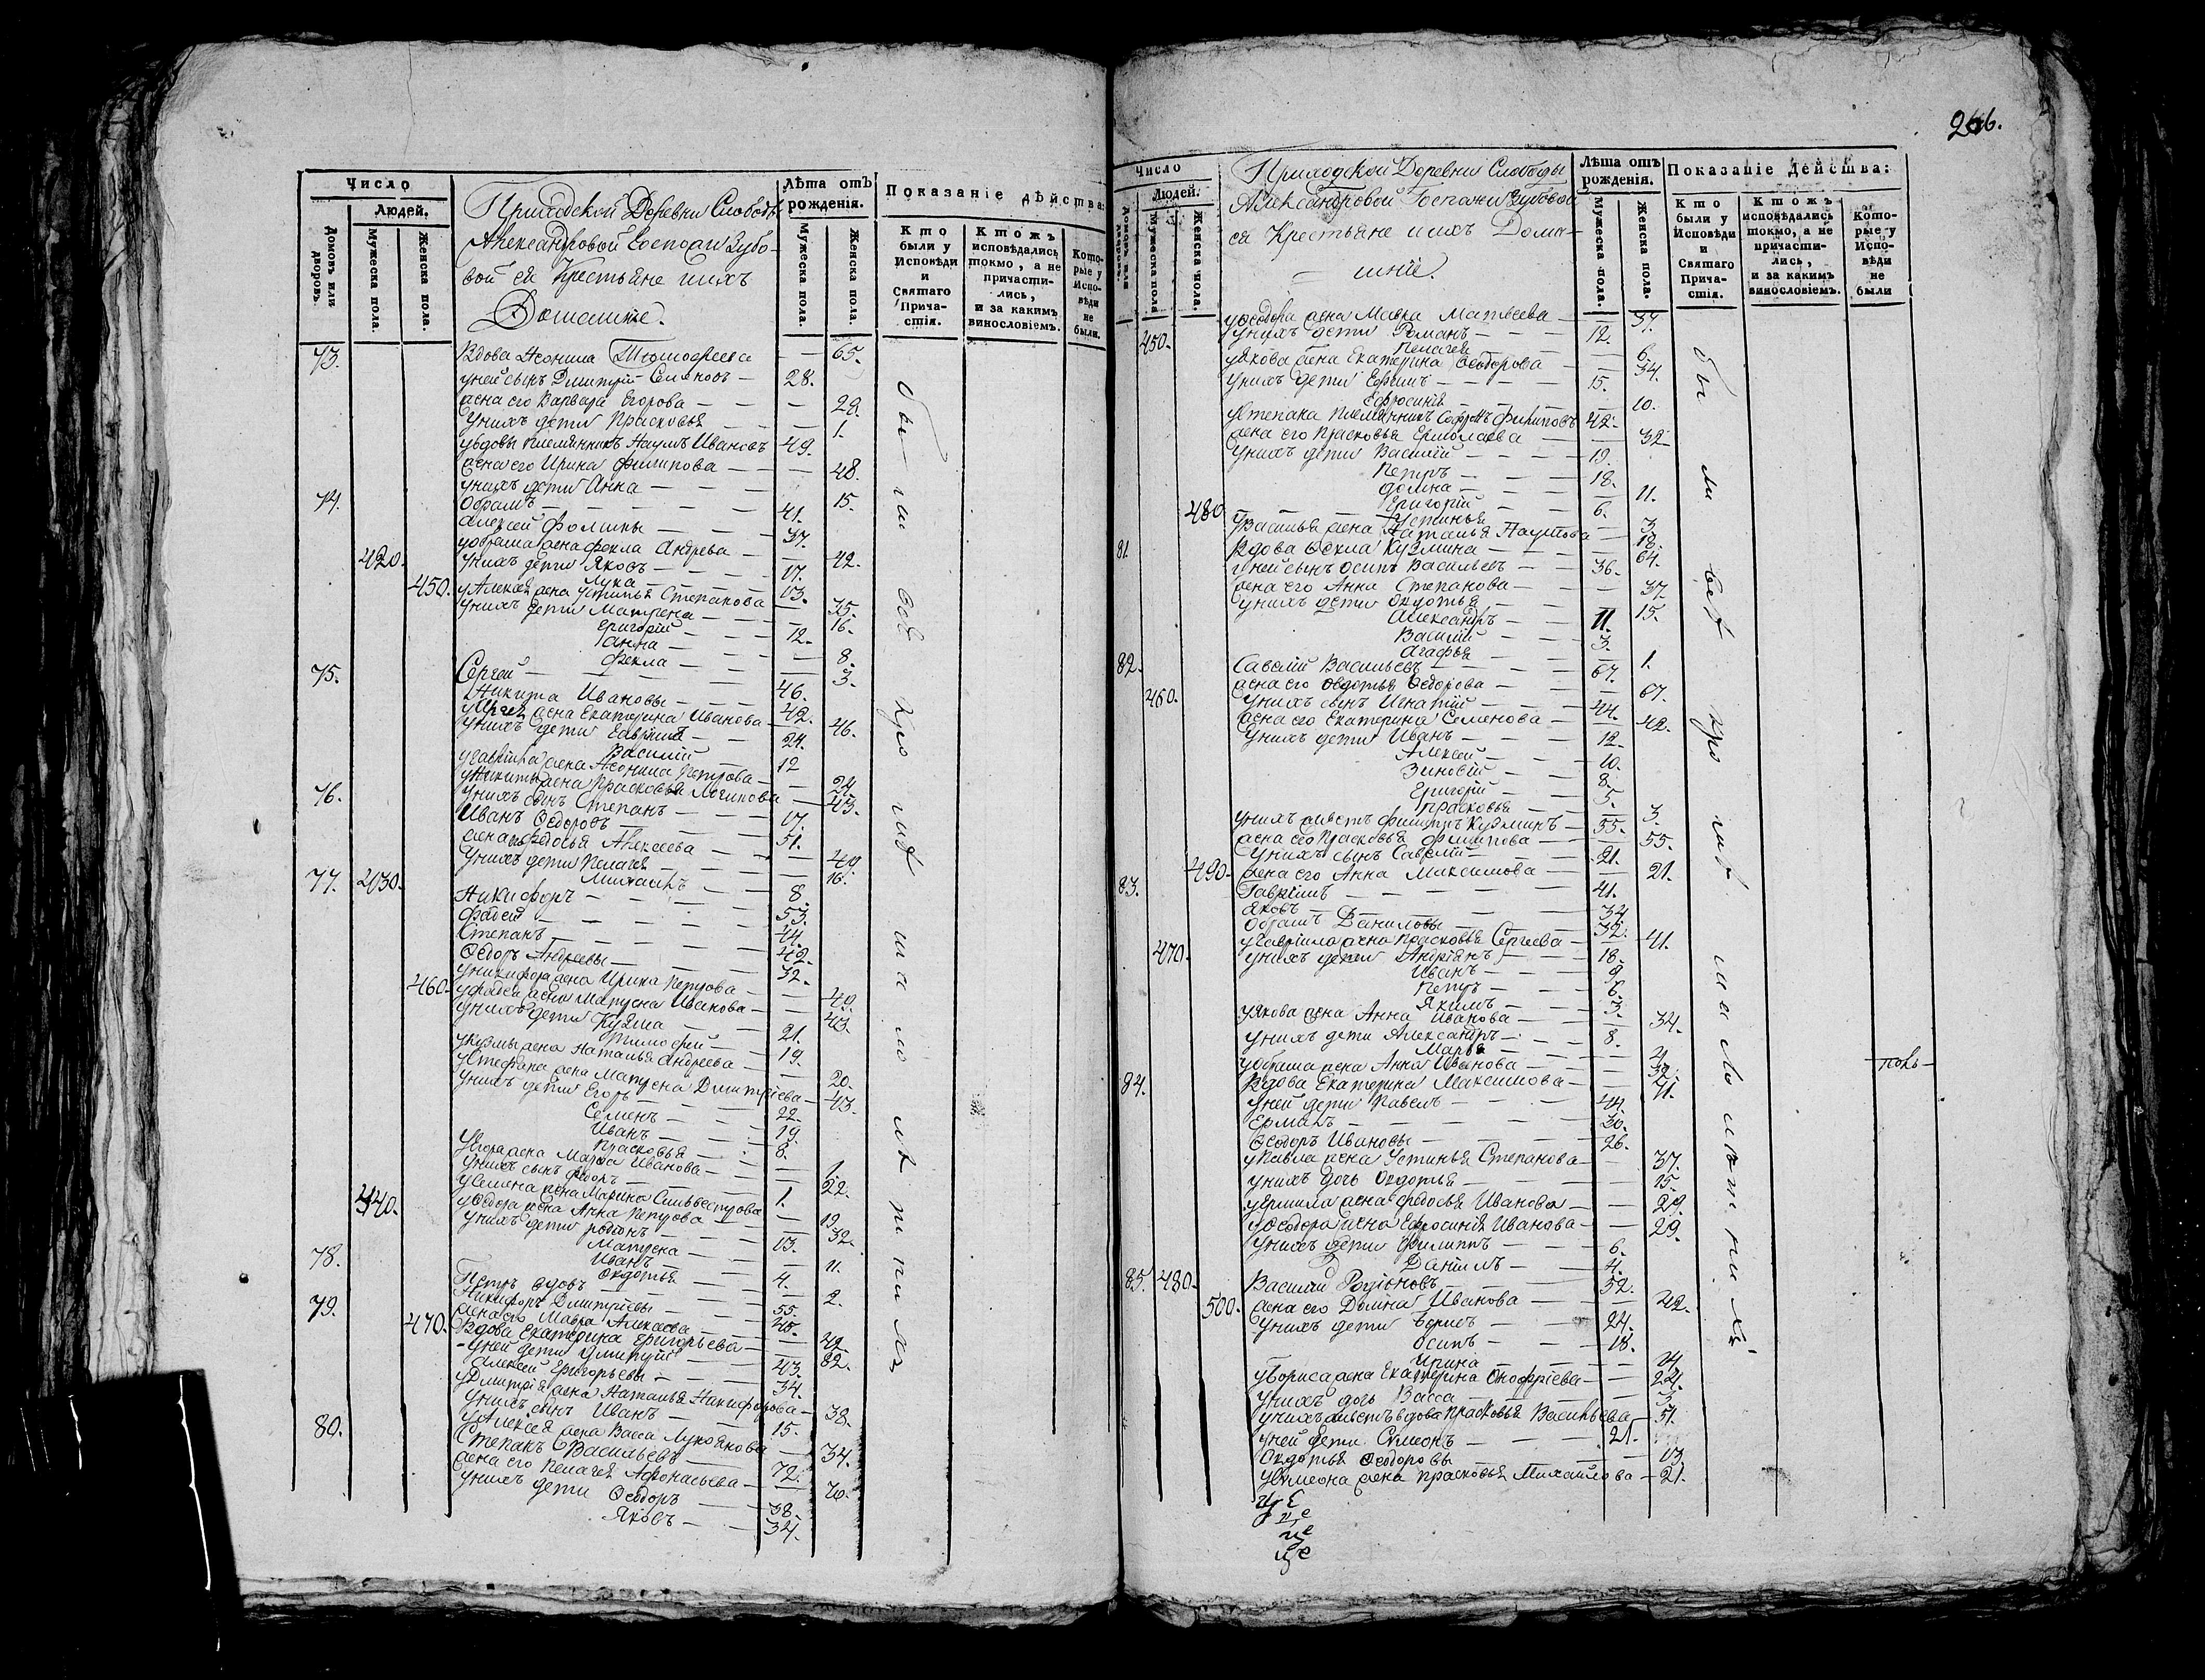 266.
Число
Людей.
Домовъ или дворовъ.
Мужеска пола.
Женска пола.
Приходской Деревни Слободы
Александровой Госпожи Зубо-
вой ея Крестьяне ихъ
Домашніе.
Лѣта отъ рожденія.
Мужеска пола.
Женска пола.
Показаніе дѣйства:
Кто были у Исповѣди и Святаго Прича-стія.
Ктожъ исповѣдались токмо, а не причасти-лись, и за какимъ винословіемъ.
Кото-рые у Испо-вѣди не были.
73. Вдова Агонила — — 65.
у ней сынъ Дмитрій Семеновъ — 28.
жена его Варвара Егорова — — 28.
у нихъ дети Прасковья — — 1.
у вдовы племянникъ Наумъ Ивановъ 49.
жена его Ирина Филипова — — 48.
у нихъ дети Анна — — 15.
74. Обрамъ — — 41.
Алексей Фомины — — 37.
у обрама жена Фекла Андрева — — 42.
420. у нихъ дети Яковъ — — 17.
Лука — 13.
450. у Алексея жена Устинья Степанова — 35.
у нихъ дети Матрена — — 16.
Григорій — — 12.
Анна — — 8.
Фекла — — 3.
75. Сергей — — 46.
Никита Ивановы — — 42.
у Сергея жена Екатерина Иванова — 46.
у нихъ дети Гаврила — — 24.
Василій — 12
у Гаврила жена Петрова — 24.
у Никиты жена Прасковья Логинова — 43.
у нихъ сынъ Степанъ — — 17.
76. Иванъ Федоровъ — — 51.
жена его Федосья Алексеева — — 49.
у нихъ дети Пелагея — — 16.
430. Михаилъ — — 8.
77. Никифоръ — — 53.
Фадей — — 44.
Степанъ — — 42.
Федоръ Андреевы — — 32.
у Никифора жена Ирина Петрова — — 49.
460. у Фадея жена Матрена Иванова — — 43.
у нихъ дети Кузма — — 21.
Тимофей — — 19.
у Кузмы жена Наталья Андреева — — 20.
у Стефана жена Матрена Дмитріева — 43.
у нихъ дети Егоръ — — 22.
Семенъ — — 19.
Иванъ — — 8.
Прасковья — — 1.
у Егора жена Марфа Иванова — — 22.
у нихъ сынъ Федоръ — — 1.
у Семена жена Марина Сильвестрова — 19.
440. у Федора жена Анна Петрова — 32.
у нихъ дети Родіонъ — — 13.
Матрена — — 11.
Иванъ — — 4.
Окдотья — — 2.
78. Петръ вдовъ — — 55.
Никифоръ Дмитріевы — — 45.
жена его Мавра Алексеева — — 42.
79. 470. Вдова Екатерина Григорьева — — 82.
у ней дети Дмитрій — — 43.
Алексей Григорьевы — — 34.
у Дмитрія жена Наталья Никифорова — 38.
у нихъ сынъ Иванъ — — 15.
у Алексея жена Васса Лукоянова — 34.
80. Степанъ Васильевъ — 72.
жена его Пелагея Афонасьева — — 70.
у нихъ дети Федоръ — — 38.
Яковъ — — 34.
были все кро ме ма ло лет ни хъ
Число
Людей.
Домовъ или дворовъ.
Мужеска пола
Женска пола.
Приходской Деревни Слободы
Александровой Госпожи Зубовой
ея Крестьяне ихъ Дома-
шніе.
Лѣта отъ рожденія.
Мужеска пола.
Женска пола.
Показаніе Действа:
Кто были у Исповѣди и Святаго Прича-стія.
Ктожъ исповѣдались токмо, а не причасти-лись, и за какимъ винословіемъ.
Кото-рые у Испо-вѣди не были
у Федора жена Мавра Матвеева — 37.
450. у нихъ дети Романъ — 12.
Пелагея — 6.
у Якова жена Екатерина Федорова — 34.
у нихъ дети Ефимъ — — 15.
Ефросинія — — 10.
у Степана племянникъ Софронъ Филиповъ 42.
жена его Прасковья Ермолаева — — 32
у нихъ дети Василій — — 19.
Петръ — — 18.
Домна — — 11.
Григорій — — 6.
480 Устинья — — 3
у Василья жена Наталья Наумова — 18.
81. Вдова Фекла Кузмина — — 64.
у ней сынъ Осипъ Васильевъ — 36.
жена его Анна Степанова — — 37
у нихъ дети Окдотья — — 15.
Александръ — — 11.
Василій — — 3.
Агафья — — 1.
82. Савелій Васильевъ — — 67.
жена его Овдотья Федорова — — 67.
460. у нихъ сынъ Игнатій — — 44.
жена его Екатерина Семенова — — 42.
у нихъ дети Иванъ — — 12.
Алексей — — 10.
Зиновій — — 8.
Григорій — — 5.
Прасковья — — 3.
у нихъ живетъ Кузминъ — 55.
жена его Прасковья Филипова — — 55.
у нихъ сынъ Савелій — — 21.
490. жена его Анна Максимова — — 21.
83. Гаврiилъ — — 41.
Яковъ — — 34.
Обрамъ Даниловы — — 32.
у Гавріила жена Прасковья Сергеева — 41.
470. у нихъ дети Андріянъ — — 18.
Иванъ — — 9.
Петръ — — 6.
Якимъ — — 3.
у Якова жена Анна Иванова — — 34.
у нихъ дети Александръ — — 8.
Марья — —
у обрама жена Анна Иванова — — 32.
84. Вдова Екатерина Максимова — — 71.
у ней дети Павелъ — — 44.
Ермилъ — — 30.
Федоръ Ивановы — — 26.
у Павла жена Устинья Степанова — — 37.
у нихъ дочь Окдотья — — 15.
у Ермила жена Федосья Иванова — — 29.
у Федора жена Ефросинія Иванова — — 29.
у нихъ дети Филиппъ — — 6.
Даніилъ — — 4.
85. 480. Василій Родіоновъ — — 52.
500. жена его Домна Иванова — — 42.
у нихъ дети Борисъ — — 24.
Осипъ — — 18.
Ирина — —
у Бориса жена Екатерина Онофріева — — 24.
у нихъ дочь Васса — — 3.
у нихъ живетъ вдова Прасковья Васильева — 51.
у ней дети Симеонъ — — 21.
Окдотья Федоровы — — 13
у Симеона жена Прасковья Михайлова — 21.
были все кро ме ма ло лет ни хъ